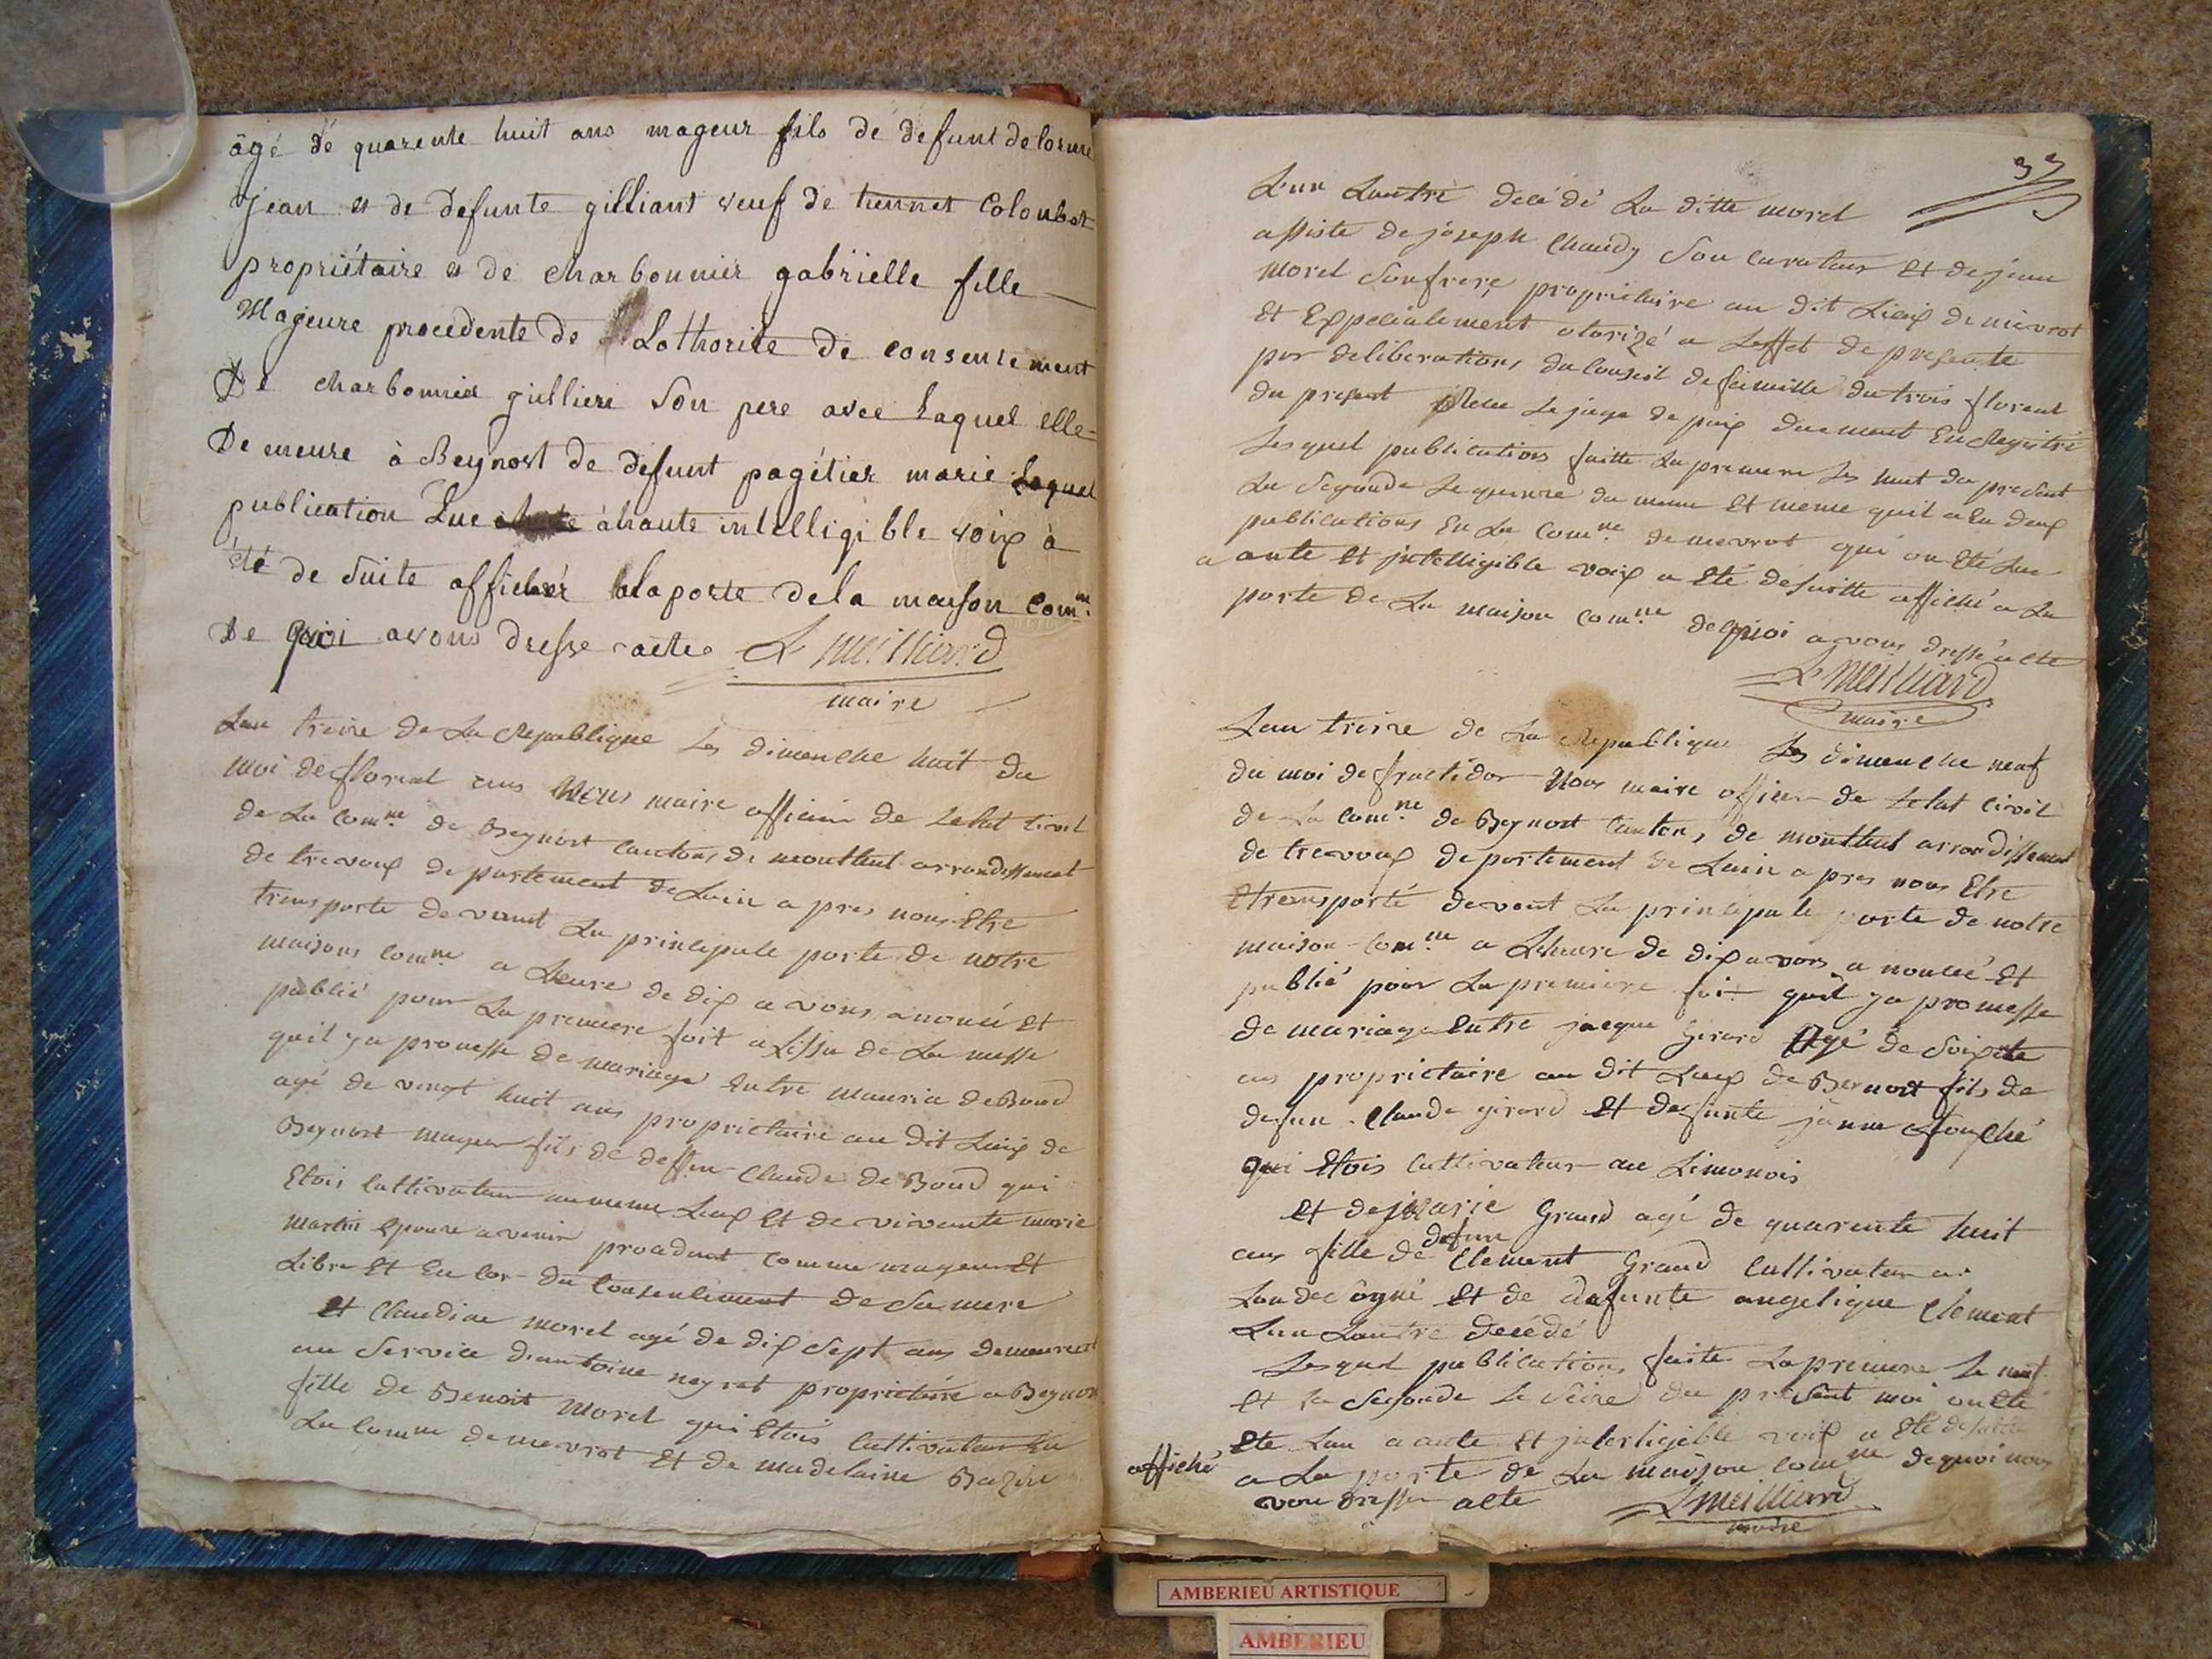 âgé dé quarente huit ans mageur fils dé defunt delorme
jean et de defunte gilliant veuf de tiennet Colonbet
propriétaire et de charbonnier gabrielle fille
Mageure procedente de Lothorite de consentement
De charbonnier gullieri Son pere avec Laquel elle
Demeure à Beynost de defunt pagétier marie Laquel
publication Lue à haute intelligible voix à
été de Suite afficher à la porte dela maison comne
De quoi avons dresse acte L Meilliard
maire
Lan treire de La Republique Les dimanche huit du
moi de floreal ans Nous maire officier de Letat civil
de La comne de Beynost cantons de montluel arrondissement
de trevoux departement de Lain apres nous Etre
transporte devant La principale porte de notre
maisons comne a Leure de dix avons anoncé Et
publié pour La premiere foit a Lissu de La messe
quil ya promesse de mariage Entre mauria deBoud
agé de vingt huit ans proprietaire au dit Lieux de
Beynost mageur fils de deffun Claude de Boud qui
Etois Cultivateur au meme Lieux Et de vivante marie
martin Epouse avenir procedant comme mageur Et
Libre Et En cor du consentiment de Sa mere
Et Claudine morel agé de dix Sept ans demeurent
au Service dantoine neyret proprietaire a Beynost
fille de Benoit Morel qui Etois Cultivateur En
La comne de mevrot Et de madelaine Bazin
33
L'un Lautre decédé La ditte morel
assiste de joseph Chaudy Son curateur Et de jean
morel Son frere proprietaire au dit Lieux de mievrot
Et Expecialement otorizé a Leffet de presente
par deliberations du Conseil de famille du trois floreal
du present Le juge de paix duement Enregistré
Lesquel publications faitte La premiere Les huit du present
La Segonde Le quinze du meme Et meme quil a Eu deux
publications En La comne de mevrot qui on Eté Lue
a aute Et jntelligible voix a Eté desuitte affiché a La
porte de La maison comne dequoi avons dressé acte
L Meilliard
maire
Lan treize de La Republique Les dimanche neuf
du moi de fructidor Nous maire officier de Letat civil
de La comne de Beynost Cantons de montluel arrondissement
de trevoux departement de Lain apres nous Etre
transporté devant La principale porte de notre
maison comne a Lheure de dix avons anoncé Et
publié pour La premiere foit quil ya promesse
de mariage Entre jacque Girard Agé de Soixente
ans proprietaire au dit Lieux de Beynost fils de
defun Claude girard Et defunte janne fouché
qui Etois Cultivateur au Limonois
Et de marie Grand agé de quarente huit
ans fille de defun Clement Grand Cultivateur a
Et de defunte angelique Clement
Lun Lautre decédé
Lesquel publications faite La premiere Le neuf
Et La Segonde Le Seize du présent moi on Eté
Ete Lue a aute Et jnterligible voix a Eté desuite
affiché a La porte de La maison comne dequoi nous
avon dresser acte L Meilliard
maire
AMBERIEU ARTISTIQUE
AMBERIEU